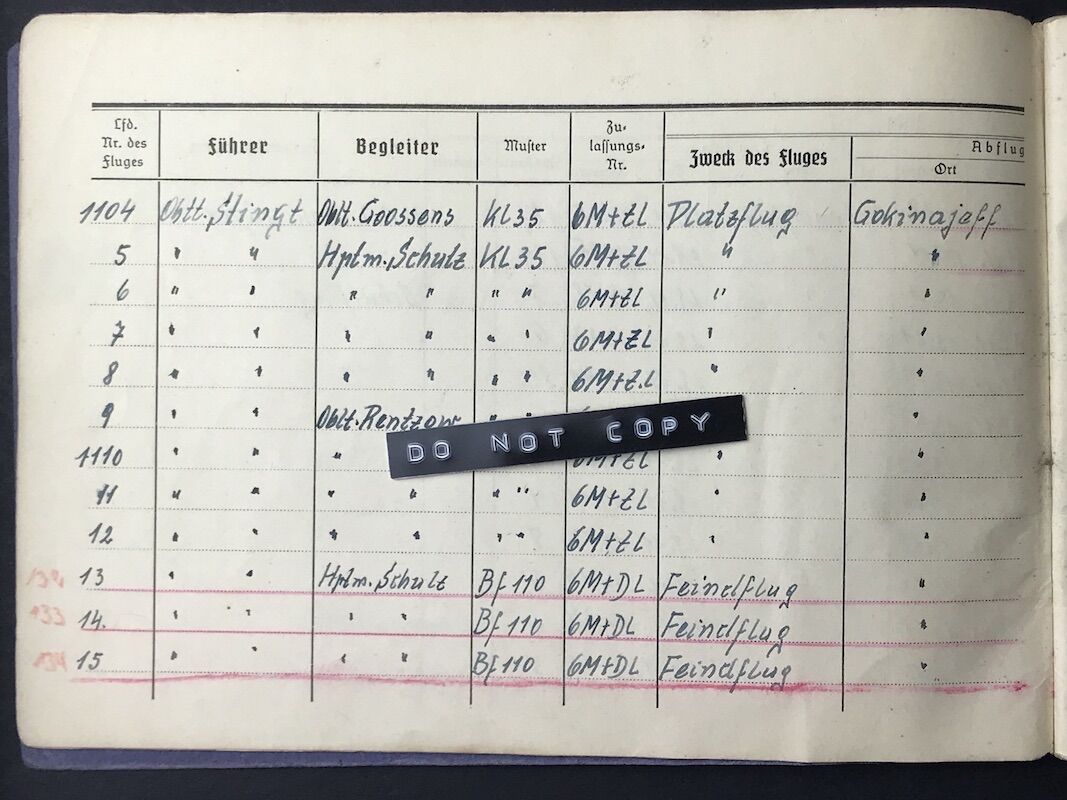 Lfd. Nr. des Fluges Führer Begleiter Muster Zu- lassungs- Nr. Zweck des Fluges Abflug Ort
1104 Obltt. Stingt Oblt. Goossens Kl 35 6M+ZL Platzflug Gokinajeff
5 " " Hptm. Schulz Kl 35 6M+ZL " "
6 " " " " " " 6M+ZL " "
7 " " " " " " 6M+ZL " "
8 " " " " " " 6M+Z.L " "
9 " " Oblt. Rentzow " " "
DO NOT COPY
1110 " " " 6M+ZL " "
11 " " " " " " 6M+ZL " "
12 " " " " " " 6M+ZL " "
13 " " Hptm. Schulz Bf 110 6M+DL Feindflug "
133 14. " " " " Bf 110 6M+DL Feindflug "
134 15 " " " " Bf 110 6M+DL Feindflug "